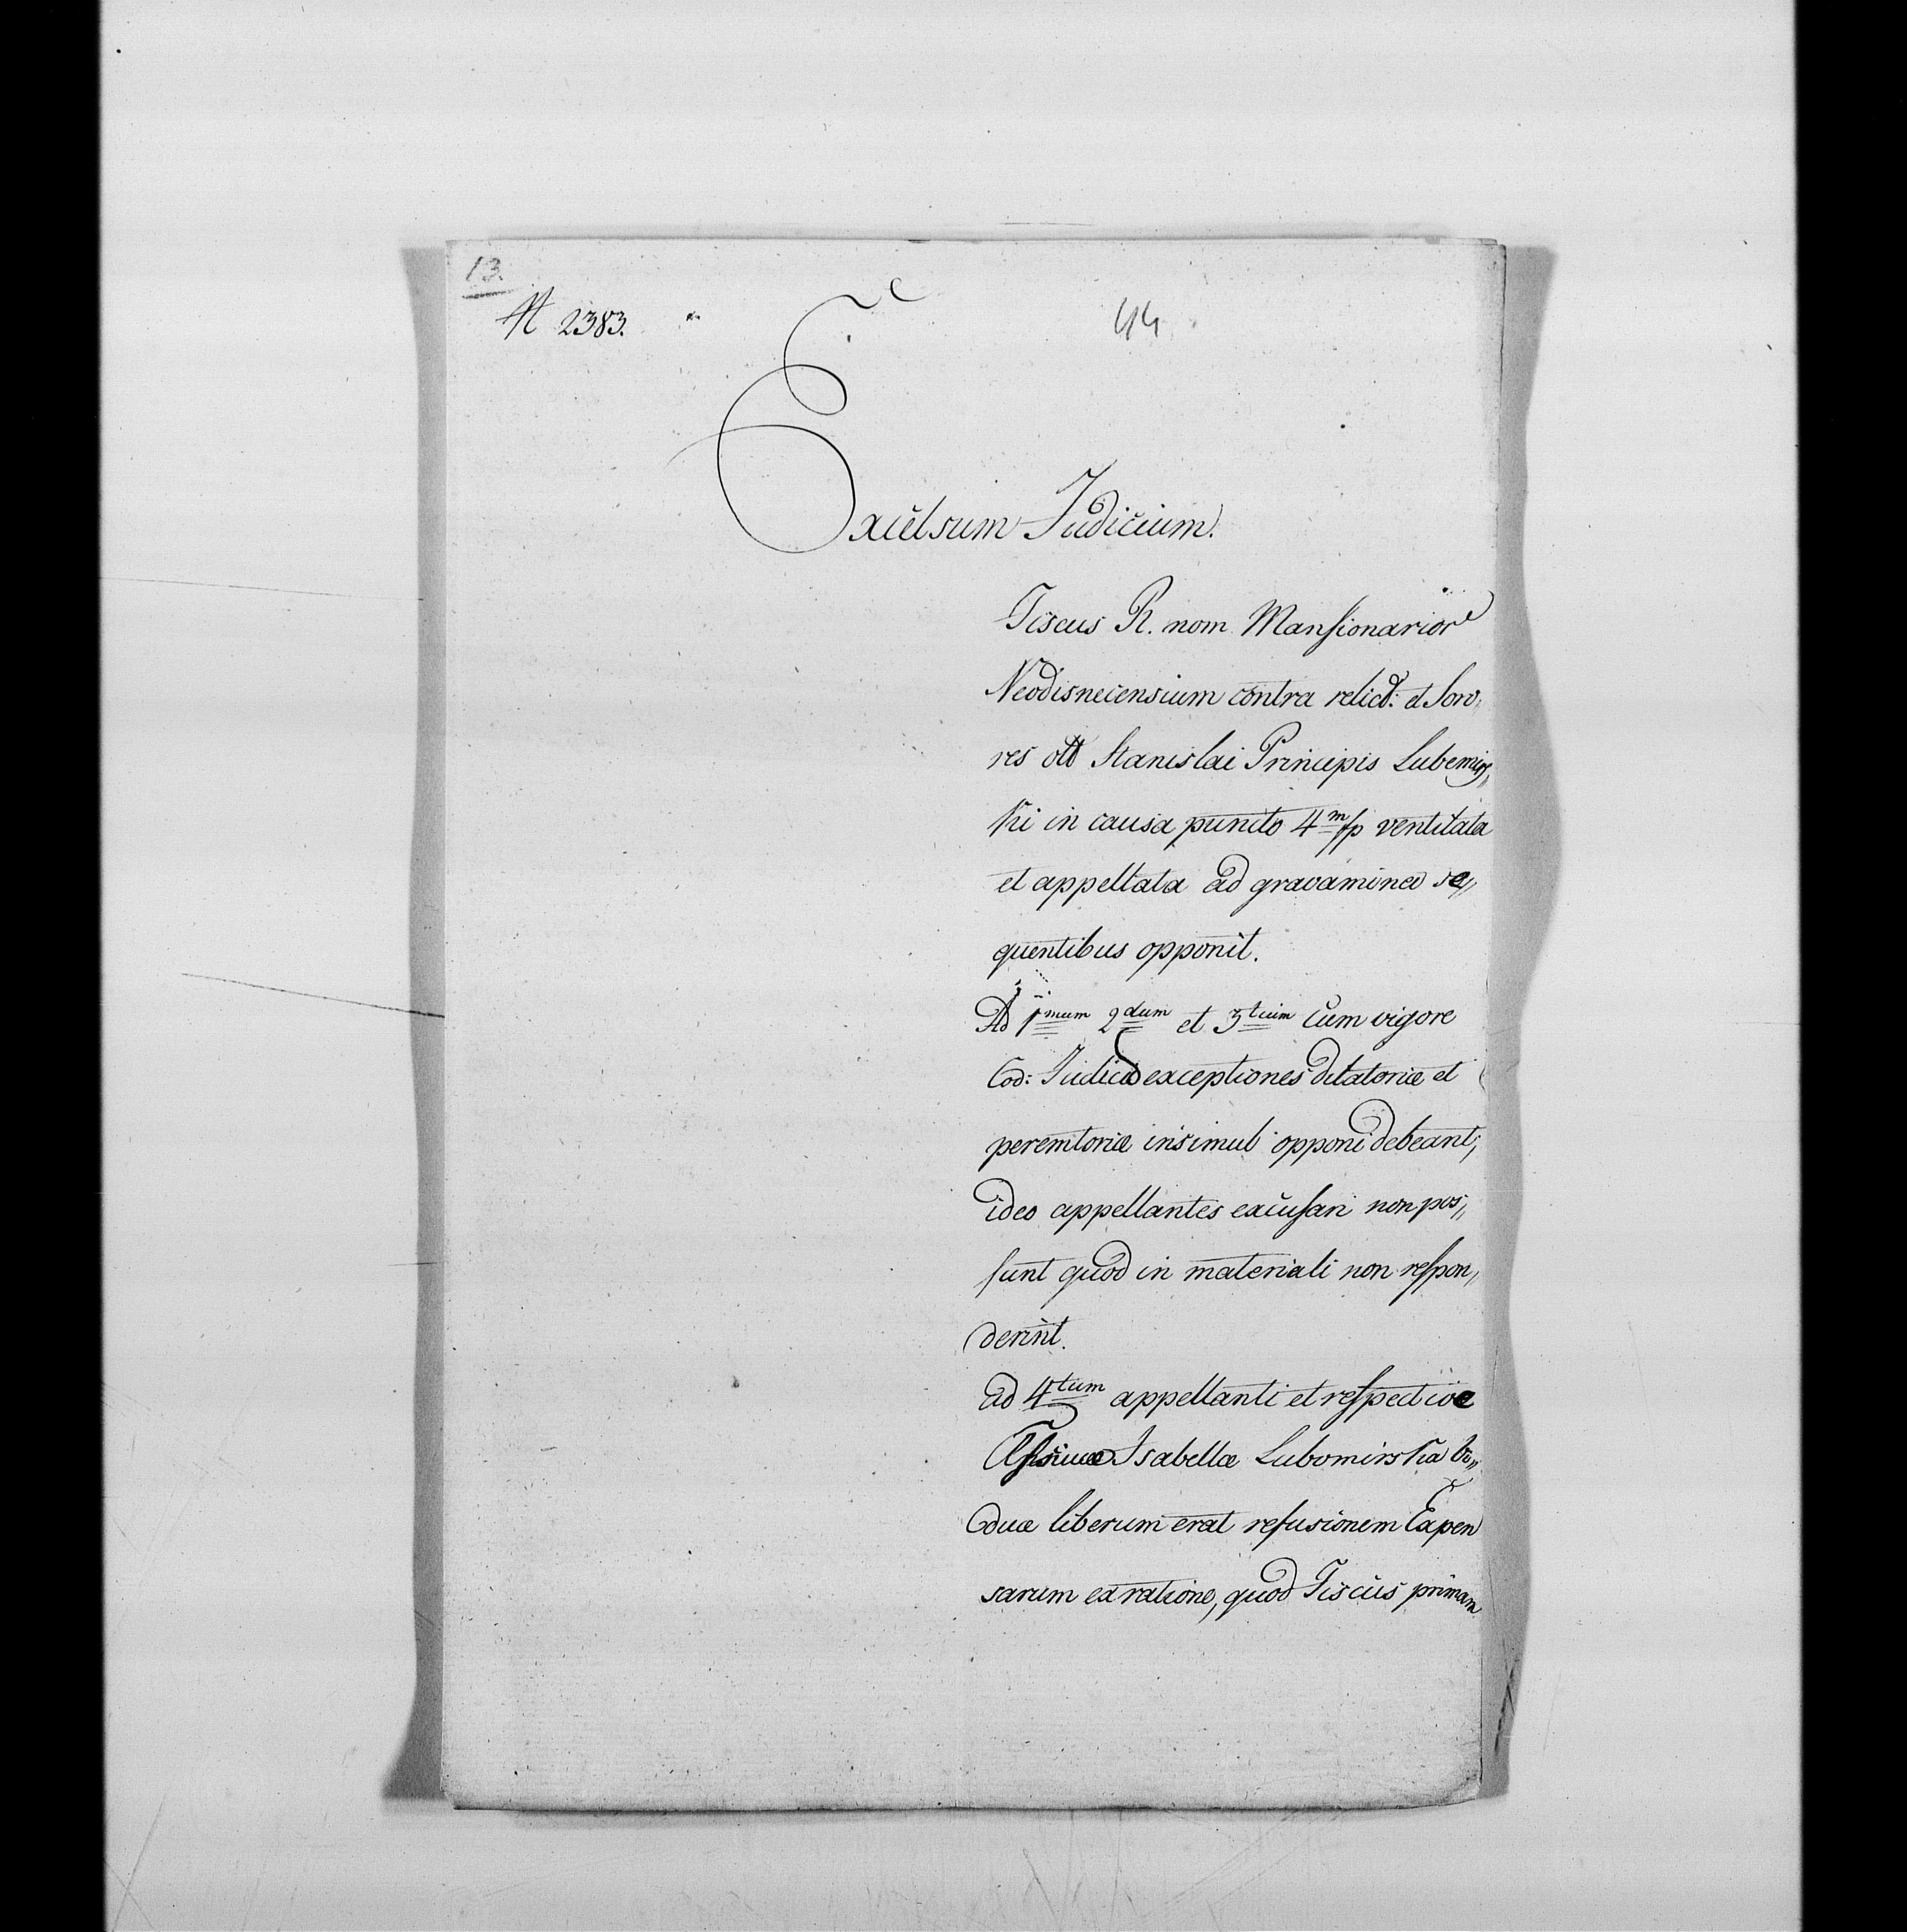 13.
№ 2383.
44
Excelsum Judicium.
Fiscus R. nom Mansionarior
Neodisnecensium contra relict: et Soro„
res Stanislai Principis Lubomirs„
ki in causa puncto 4m fp ventilata
et appellata ad gravamina se„
quentibus opponit.
Ad 1mum 2dum et 3tium Cum vigore
Cod: exceptiones dilatoriæ et
peremtoriæ insimul opponi debeant,
ideo appellantes excusari non pos„
sunt quod in materiali non respon„
derint.
ad 4tum appellanti et respective
Isabellæ Lubomirska Vi„
duæ liberum erat refusionem Expen
sarum ex ratione, quod Fiscus primam